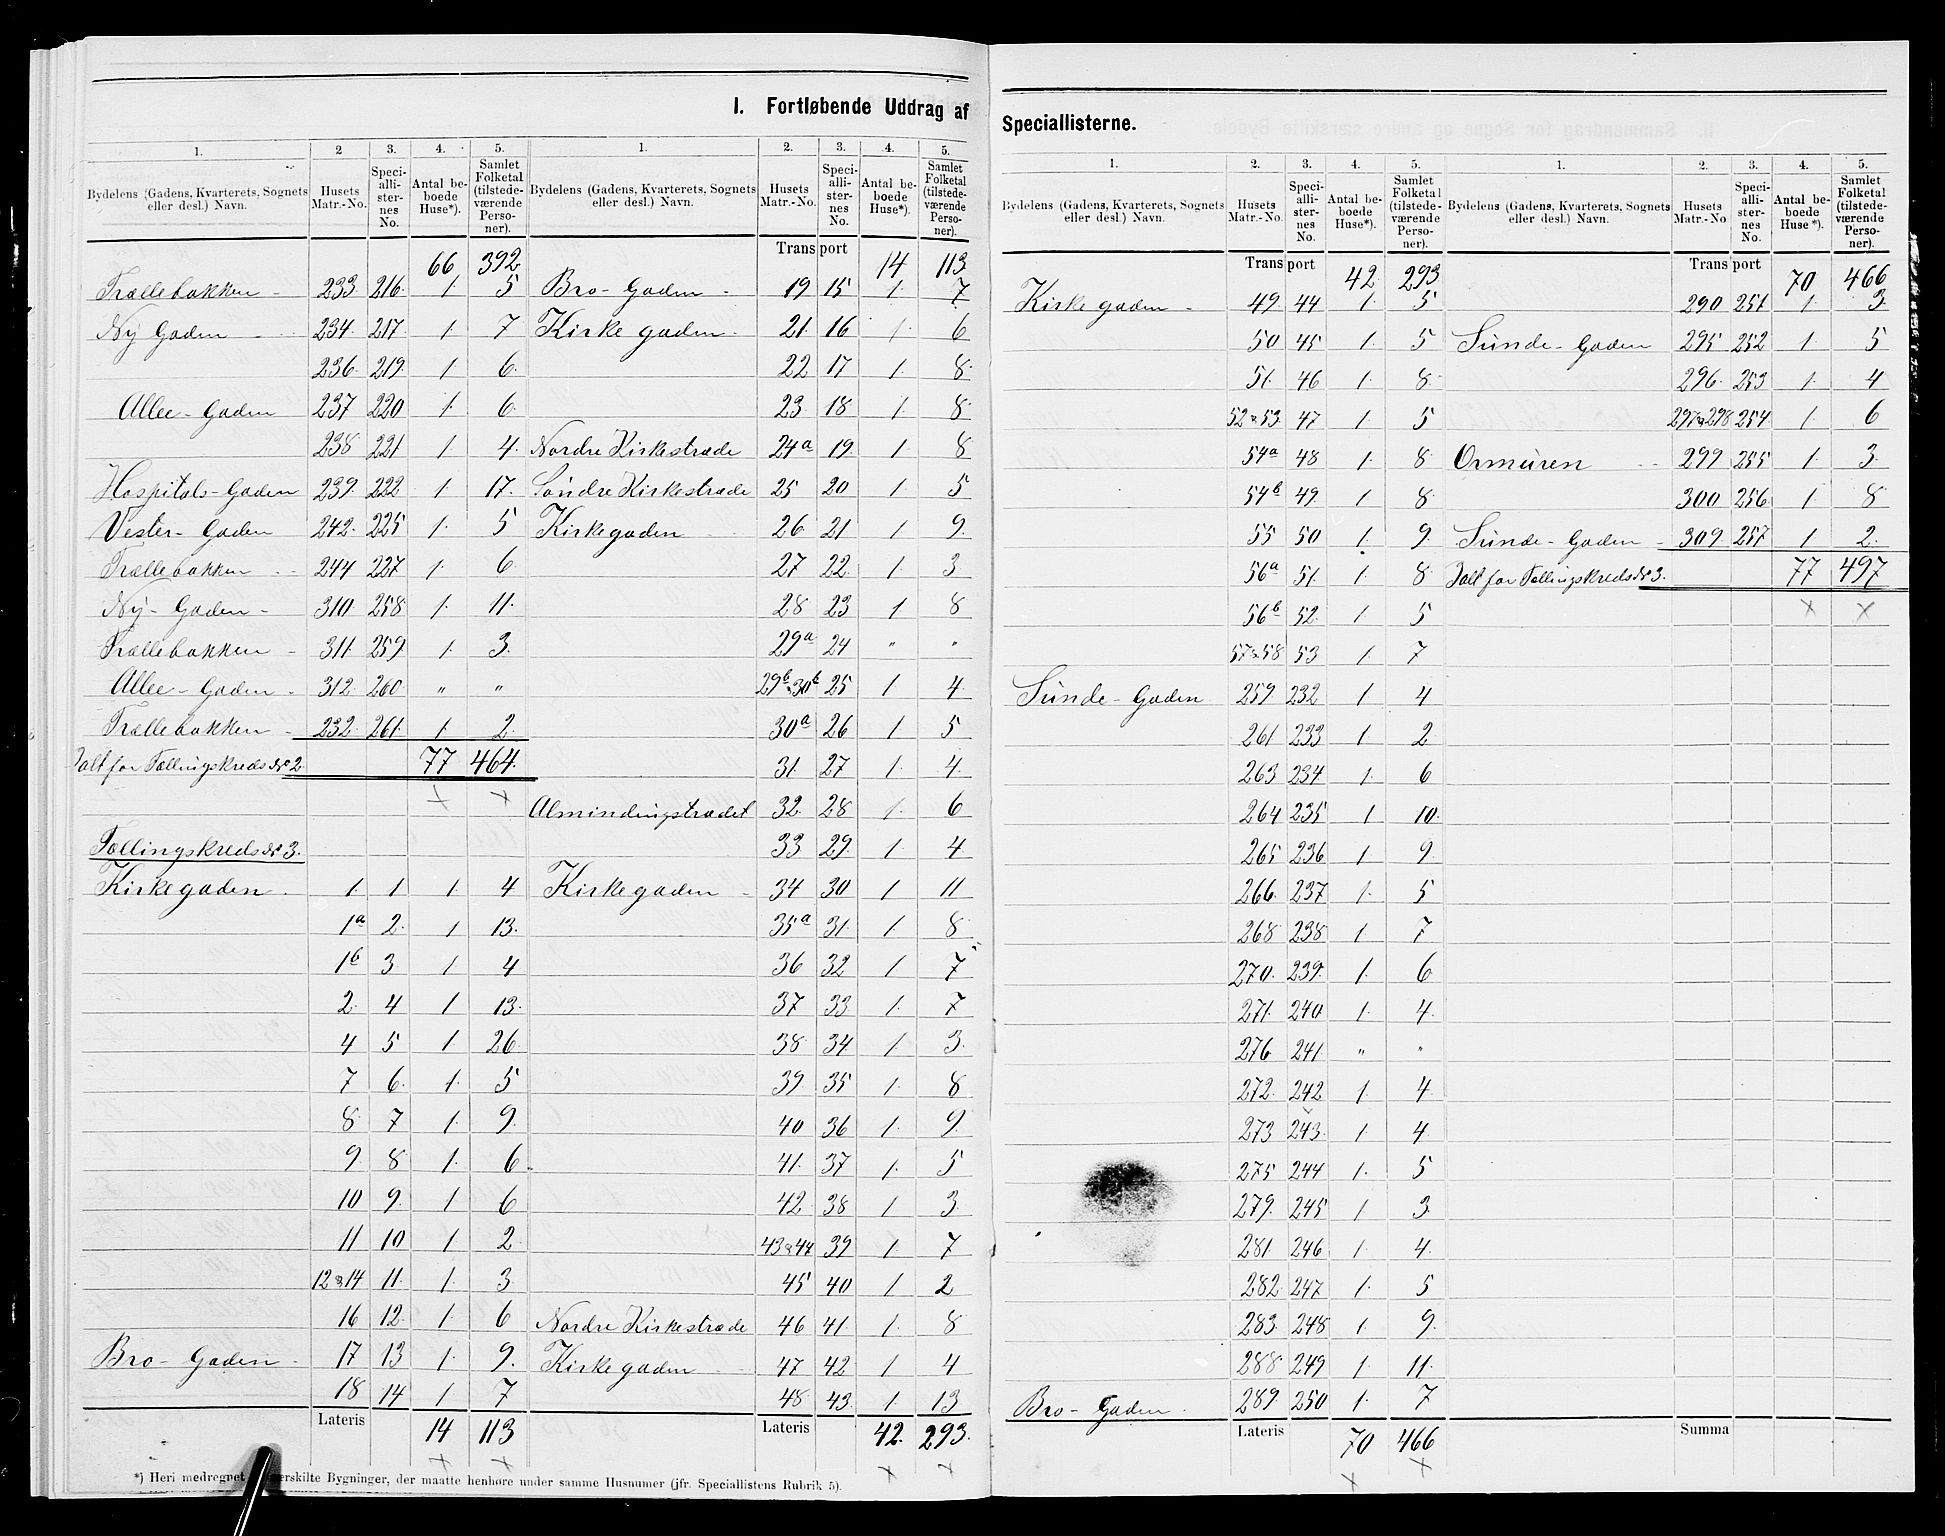 I. Fortløbende Uddrag af
1. 2 3. 4. 5.
Bydelens (Gadens, Kvarterets, Sognets eller desl.) Navn. Husets Matr.-No. Speciallisternes No. Antal beboede Huse*). Samlet Folketal (tilstedeværende Personer).
66 392
Trællebakken - 233 216 1 5
Ny Gaden - 234 217 1 7
236 219 1 6
Allee-Gaden 237 220 1 6
238 221 1 4
Hospitals-Gaden 239 222 1 17
Vester-Gaden 242 225 1 5
Trællebakken - 244 227 1 6
Ny-Gaden - 310 258 1 11
Trællebakken - 311 259 1 3
Allee-Gaden - 312 260 " "
Trællebakken - 232 261 1 2
Ialt for Tællingskreds No 2 77 464
Tællingskreds No 3.
Kirkegaden - 1 1 1 4
1a 2 1 13
1b 3 1 4
2 4 1 13
4 5 1 26
7 6 1 5
8 7 1 9
9 8 1 6
10 9 1 6
11 10 1 2
12 & 14 11 1 3
16 12 1 6
Bro-Gaden - 17 13 1 9
18 14 1 7
Lateris 14 113
1. 2. 3. 4. 5.
Bydelens (Gadens, Kvarterets, Sognets eller desl.) Navn. Husets Matr.-No. Speciallisternes No. Antal beboede Huse*). Samlet Folketal (tilstedeværende Personer).
Transport 14 113
Bro-Gaden - 19 15 1 7
Kirkegaden - 21 16 1 6
22 17 1 8
23 18 1 8
Nordre Kirkestræde 24a 19 1 8
Søndre Kirkestræde 25 20 1 5
Kirkegaden 26 21 1 9
27 22 1 3
28 23 1 8
29a 24 " "
29b & 30b 25 1 4
30a 26 1 5
31 27 1 4
Almindingstrædet 32 28 1 6
33 29 1 4
Kirkegaden - 34 30 1 11
35a 31 1 8
36 32 1 7
37 33 1 7
38 34 1 3
39 35 1 8
40 36 1 9
41 37 1 5
42 38 1 3
43 & 44 39 1 7
45 40 1 2
Nordre Kirkestræde 46 41 1 8
Kirkegaden - 47 42 1 4
48 43 1 13
Lateris 42 293
*) Heri medregnet særskilte Bygninger, der maatte henhøre under samme Husnumer (jfr. Speciallistens Rubrik 5).
Speciallisterne.
1. 2. 3. 4. 5.
Bydelens (Gadens, Kvarterets, Sognets eller desl.) Navn. Husets Matr.-No Speciallisternes No. Antal beboede Huse*). Samlet Folketal (tilstedeværende Personer).
Transport 42 293
Kirkegaden - 49 44 1 5
50 45 1 5
51 46 1 8
52 & 53 47 1 5
54a 48 1 8
54b 49 1 8
55 50 1 9
56a 51 1 8
56b 52 1 5
57 & 58 53 1 7
Sunde-Gaden 259 232 1 4
261 233 1 2
263 234 1 6
264 235 1 10
265 236 1 9
266 237 1 5
268 238 1 7
270 239 1 6
271 240 1 4
276 241 " "
272 242 1 4
273 243 1 4
275 244 1 5
279 245 1 3
281 246 1 4
282 247 1 5
283 248 1 9
288 249 1 11
Bro-Gaden 289 250 1 7
Lateris 70 466
1. 2. 3. 4. 5.
Bydelens (Gadens, Kvarterets, Sognets eller desl.) Navn. Husets Matr.-No Speciallisternes No. Antal beboede Huse*). Samlet Folketal (tilstedeværende Personer).
Transport 70 466
290 251 1 3
Sunde-Gaden 295 252 1 5
296 253 1 4
297 & 298 254 1 6
Ormuren 299 255 1 3
300 256 1 8
Sunde-Gaden - 309 257 1 2
Ialt for Tællingskreds No 3. 77 497
Summa